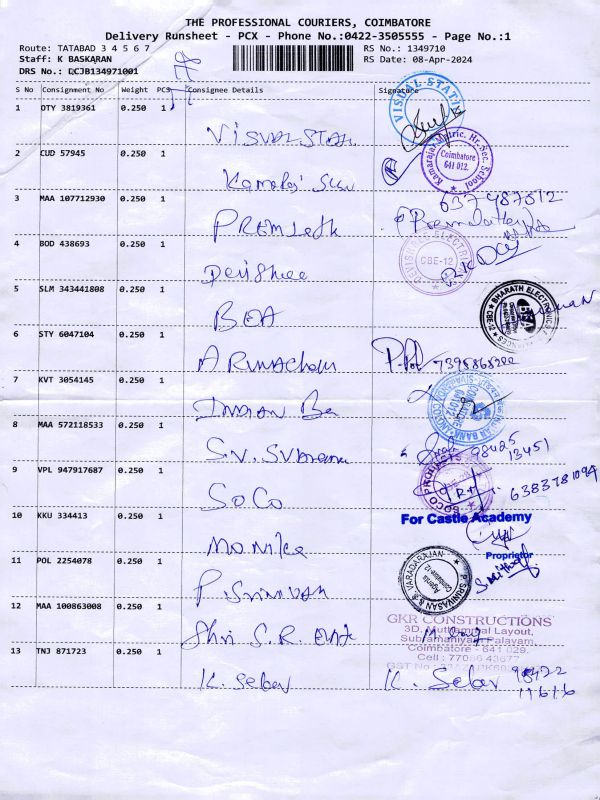 THE PROFESSIONAL COURIERS, COIMBATORE
Delivery Runsheet - PCX - Phone No.:0422-3505555 - Page No.:1
Route: TATABAD 3 4 5 6 7
RS No.: 1349710
Staff: K BASKARAN
RS Date: 08-Apr-2024
DRS No.: CCJB134971001
S No Consignment No Weight PCS Consignee Details Signature
1 OTY 3819361 0.250 1
VISUAL STATI
2 CUD 57945 0.250 1
Kamaraj Matric. Hr. Sec. School
Coimbatore
641 012.
3 MAA 107712930 0.250 1 637 487512
4 BOD 438693 0.250 1 Devishree
DEVISHREE ELECTRIC
CBE-12
5 SLM 343441808 0.250 1 BEA
BHARATH ELECTRONICS
6 STY 6047104 0.250 1 Arunachalam
7 KVT 3054145 0.250 1 INDIAN Ba
8 MAA 572118533 0.250 1 S.V. Subramani 98425
13451
9 VPL 947917687 0.250 1 SoCo
SOCO PRODUCTS
6383781094
10 KKU 334413 0.250 1 Monika
For Castle Academy
Proprietor
11 POL 2254078 0.250 1 P. Srinivasan
P. SRINIVASAN & S. VARADARAJAN
Agents
Coimbatore-12
12 MAA 100863008 0.250 1 Shri S.R.
GKR CONSTRUCTIONS
3D, Muthammal Layout,
Subramaniyam Palayam,
Coimbatore - 641 029.
Cell : 77086 43677
GST No
13 TNJ 871723 0.250 1 K. Selav K. Selav